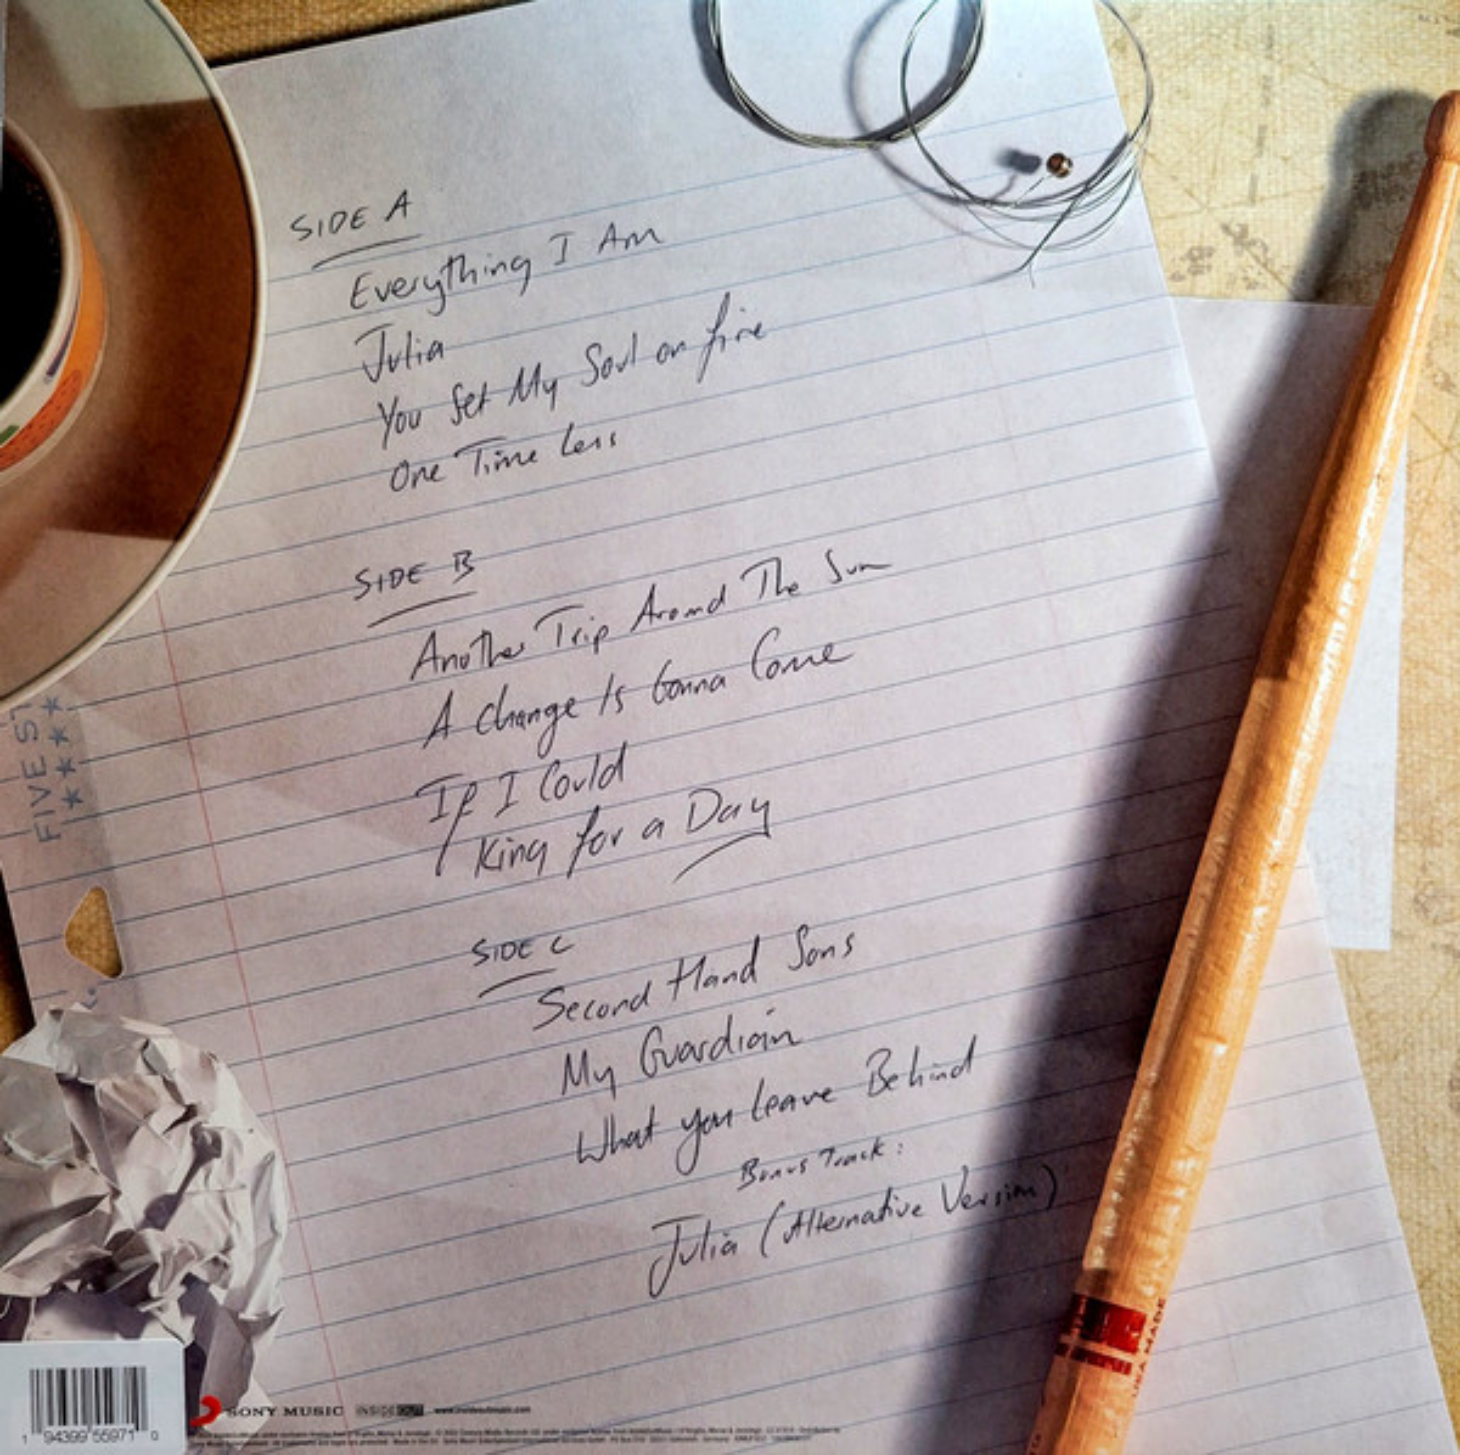 SIDE A
Everything I Am
Julia
You Set My Soul on fire
One Time Less
SIDE B
Another Trip Around The Sun
A Change Is Gonna Come
If I Could
King for a Day
SIDE C
Second Hand Sons
My Guardian
What you leave Behind
Bonus Track:
Julia (Alternative Version)
FIVE ST
★★★★
1 94399 55971 0
SONY MUSIC INSIDEOUT www.insideoutmusic.com